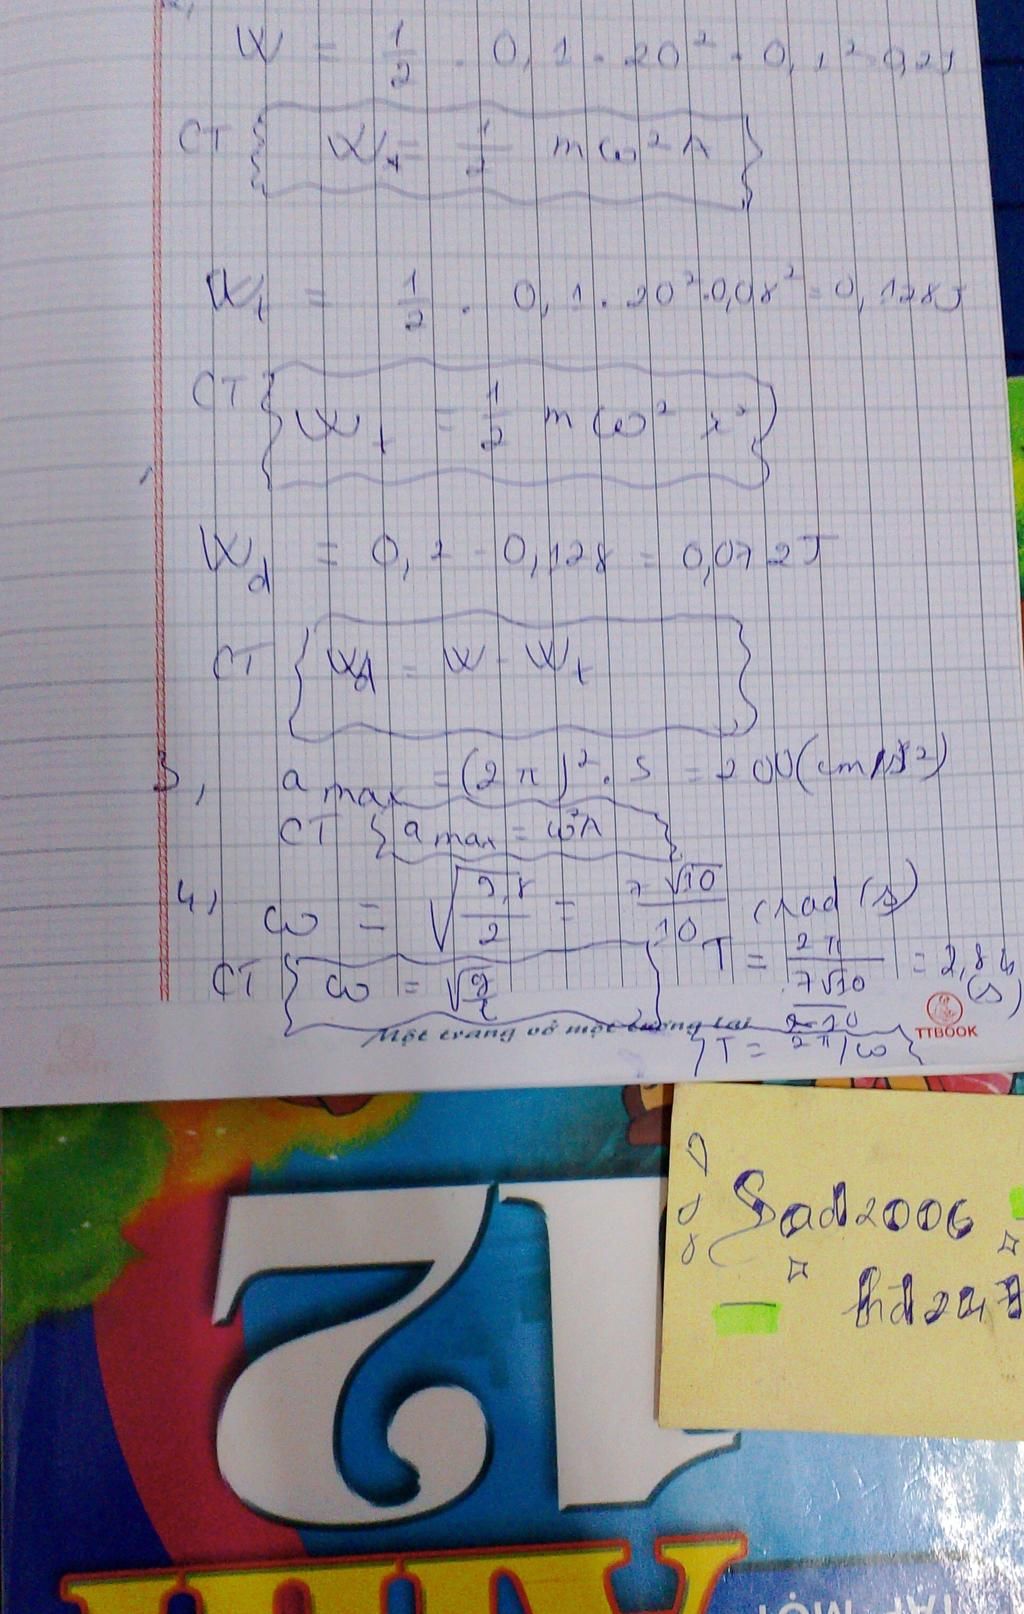 2,
W = 1/2 . 0,1 . 20² . 0,1² = 0,2J
CT { W = 1/2 mω²A }
W_t = 1/2 . 0,1 . 20² . 0,08² = 0,128J
CT { W_t = 1/2 mω² x² }
W_d = 0,2 - 0,128 = 0,072J
CT { W_d = W - W_t }
3, a max = (2π)² . 5 = 200 (cm/s²)
CT { a max = ω²A }
4, ω = √(9,8/2) = 7√10/10 (rad/s)
T = 2π/(7√10/10) = 2,84 (s)
CT { ω = √(g/l) }
{ T = 2π/ω }
Một trang vở một tương lai
TTBOOK
Sad2006
hd247
12